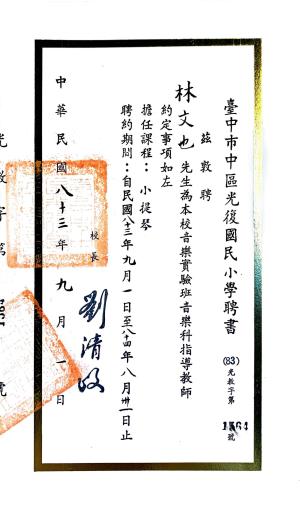 臺中市中區光復國民小學聘書
(83)光教字第
1564
號
茲敦聘
林文也先生為本校音樂實驗班音樂科指導教師
約定事項如左
擔任課程：小提琴
聘約期間：自民國八十三年九月一日至八十四年八月卅一日止
校長
劉清政
中華民國八十三年九月一日
光教字第
號